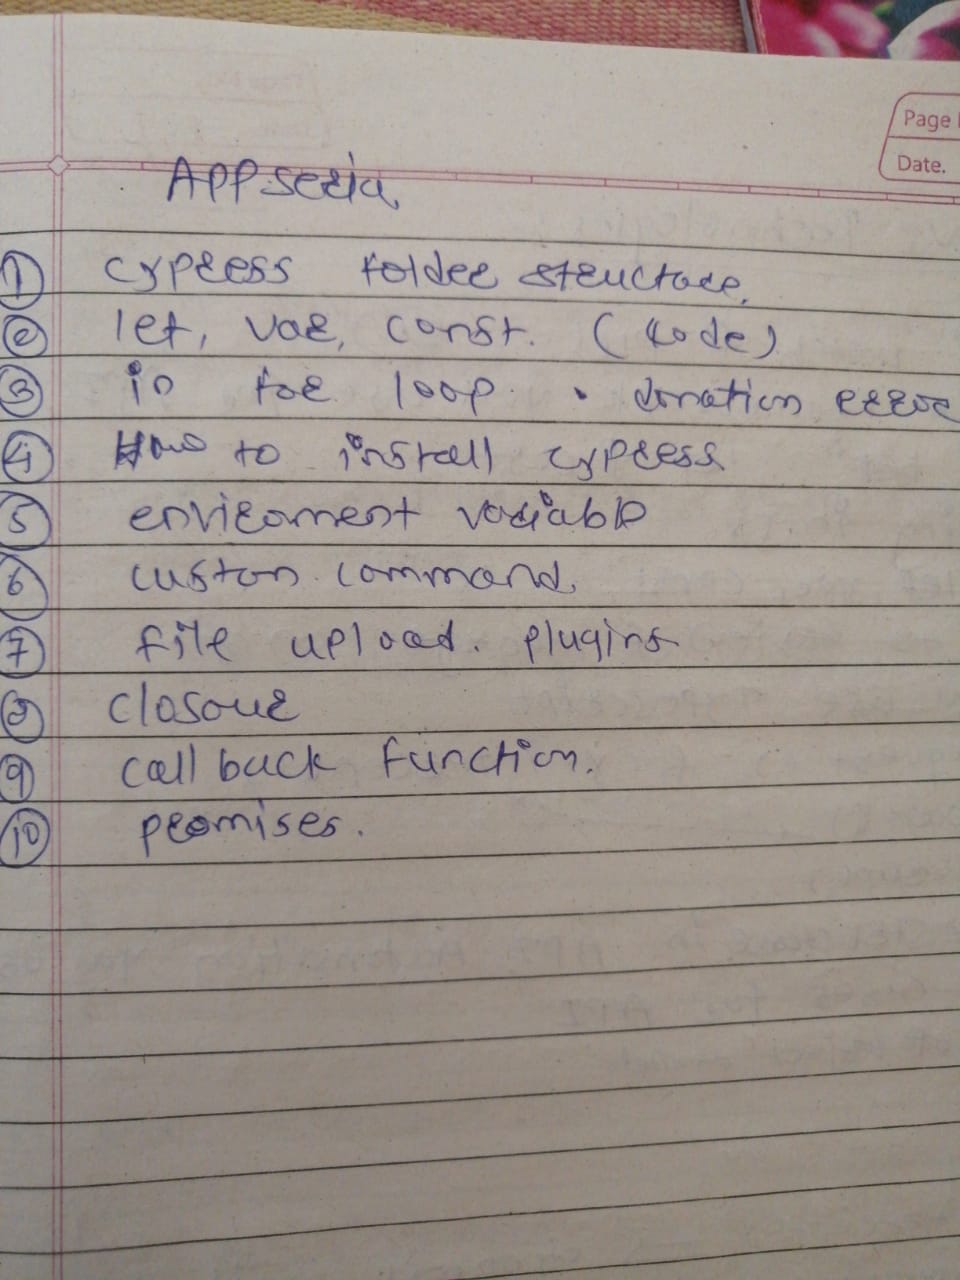 Page
Date.
Appsezia
① cypress folder structure.
② let, var, const. (code)
③ in for loop. donation error
④ How to install cypress
⑤ enviroment variable
⑥ custon command.
⑦ file upload. plugins
⑧ closour
⑨ call back function.
⑩ promises.